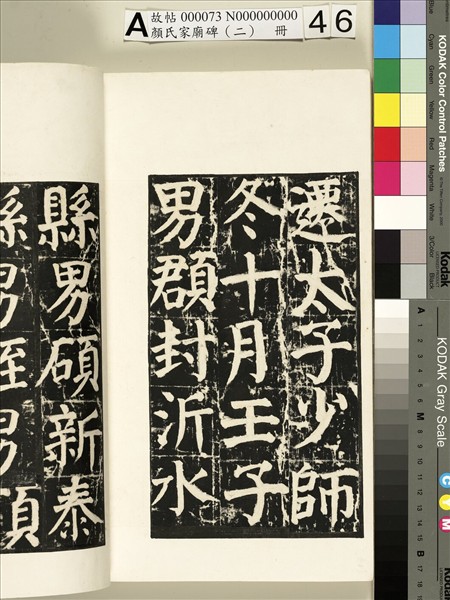 A 故帖 000073 N000000000 46
顏氏家廟碑（二） 冊
遷太子少師
冬十月壬子
男頵封沂水
縣男碩新泰
縣男姪男頂
KODAK Color Control Patches
Blue
Cyan
Green
Yellow
Red
Magenta
White
3/Color
Black
Kodak
KODAK Gray Scale
A 1 2 3 4 5 6 M 8 9 10 11 12 13 14 15 B 17 18
C Y M
Kodak